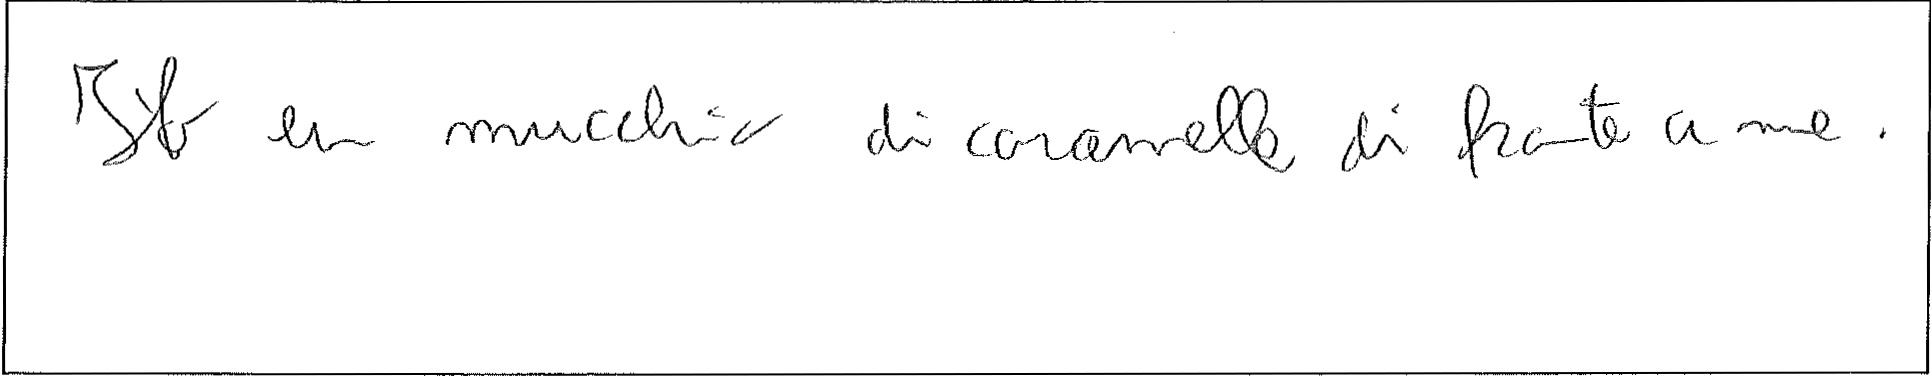 un mucchio di caramelle di fronte a me.